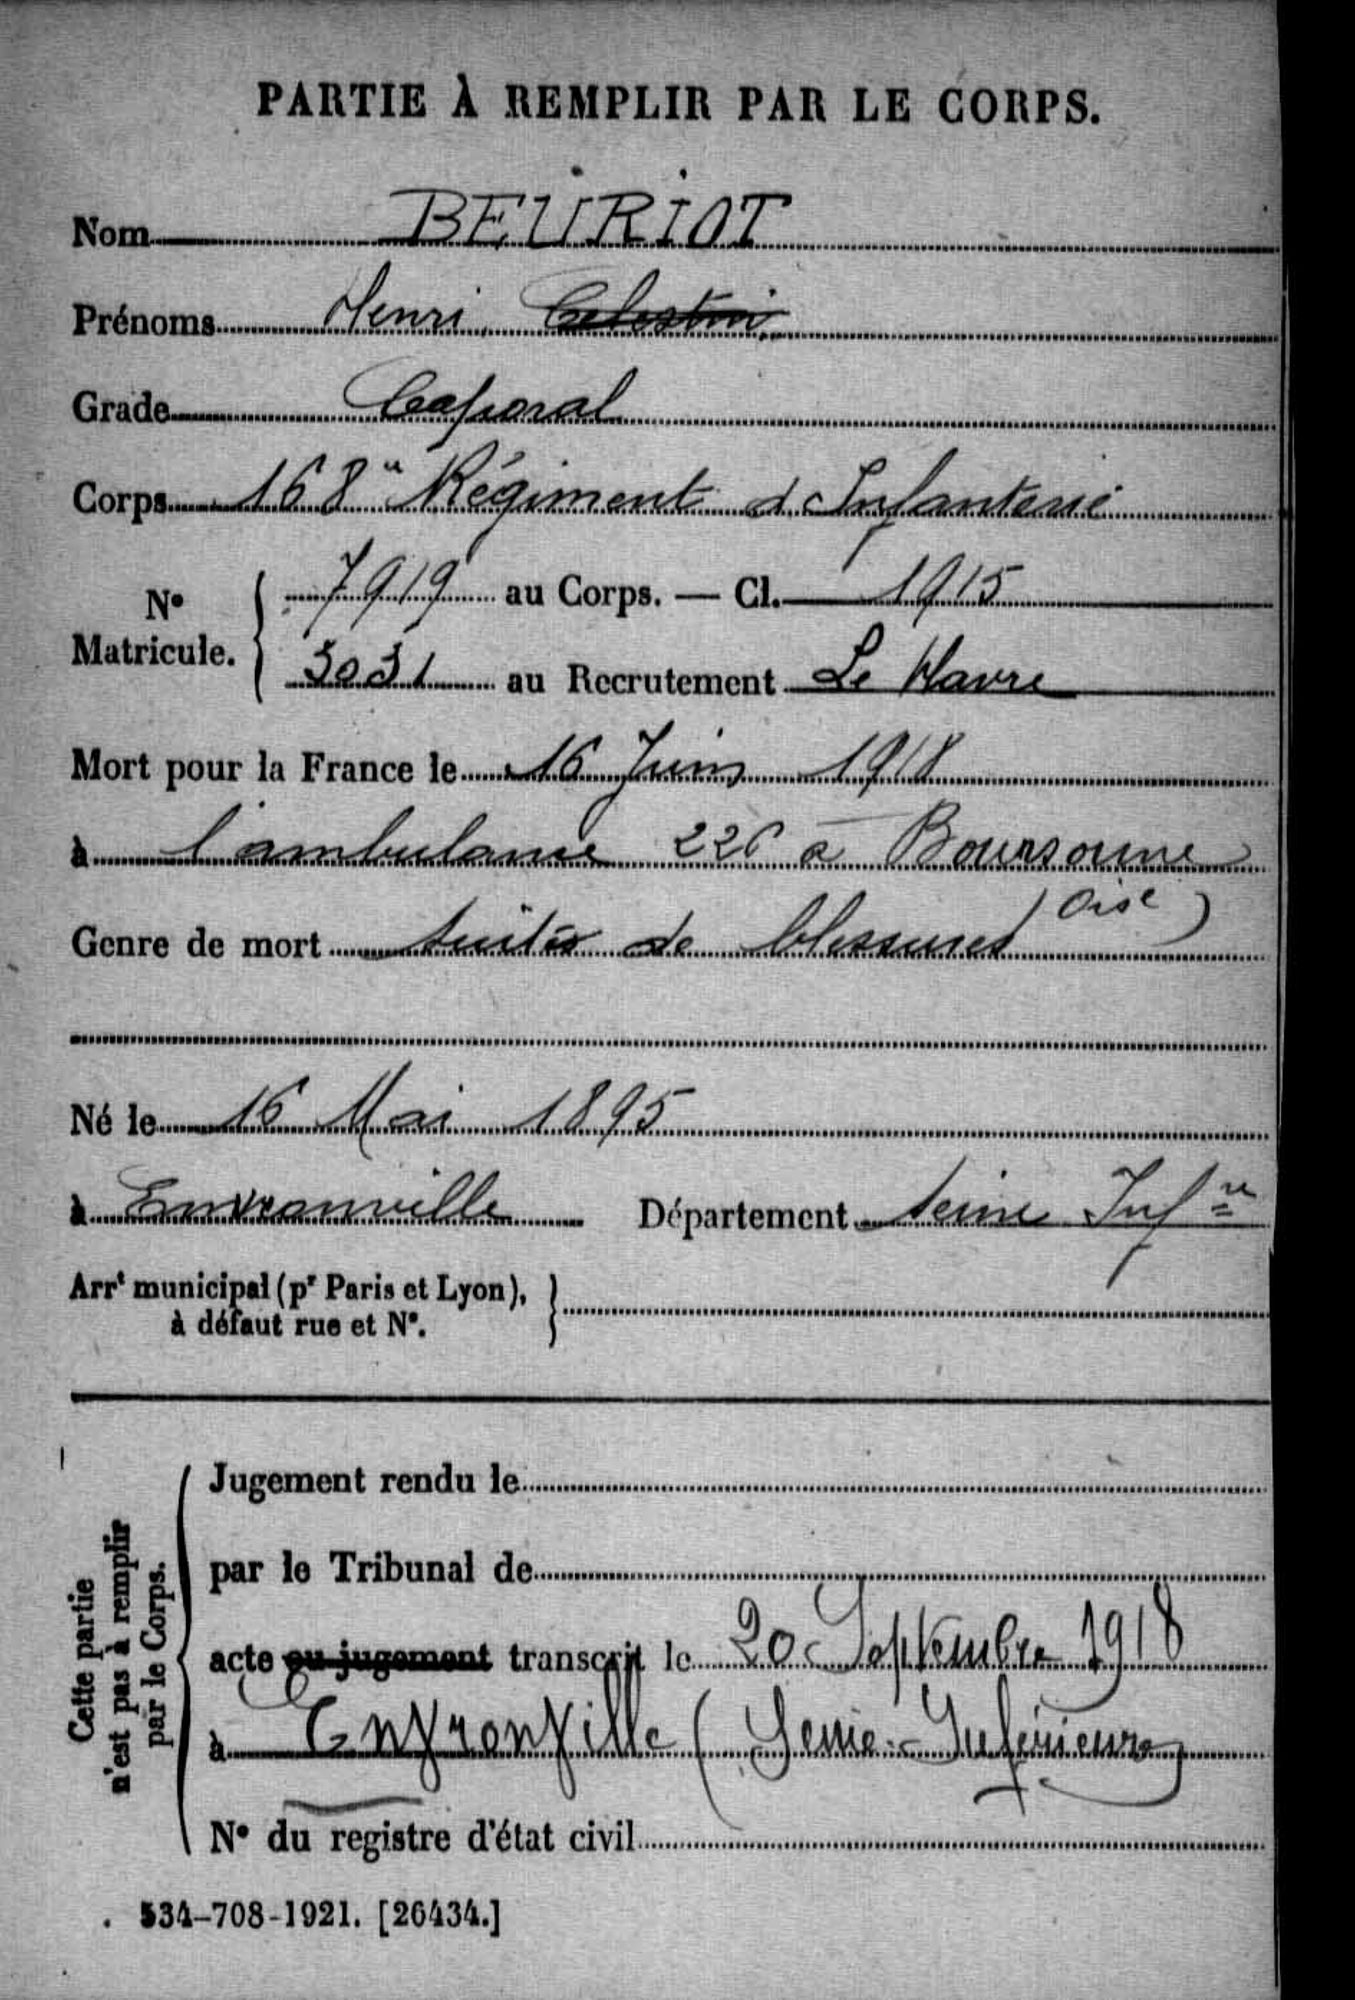 PARTIE À REMPLIR PAR LE CORPS.
Nom BEURIOT
Prénoms Henri Celestin
Grade Caporal
Corps 168e Régiment d'Infanterie
N° Matricule. 7919 au Corps. — Cl. 1915
3031 au Recrutement Le Havre
Mort pour la France le 16 Juin 1918
à l'ambulance 226 à Boursonne
(Oise)
Genre de mort suites de blessures
Né le 16 Mai 1895
à Envronville Département Seine Infre
Arrt municipal (pr Paris et Lyon),
à défaut rue et N°.
Cette partie
n'est pas à remplir
par le Corps.
Jugement rendu le
par le Tribunal de
acte ou jugement transcrit le 20 Septembre 1918
à Envronville (Seine-Inférieure)
N° du registre d'état civil
534-708-1921. [26434.]